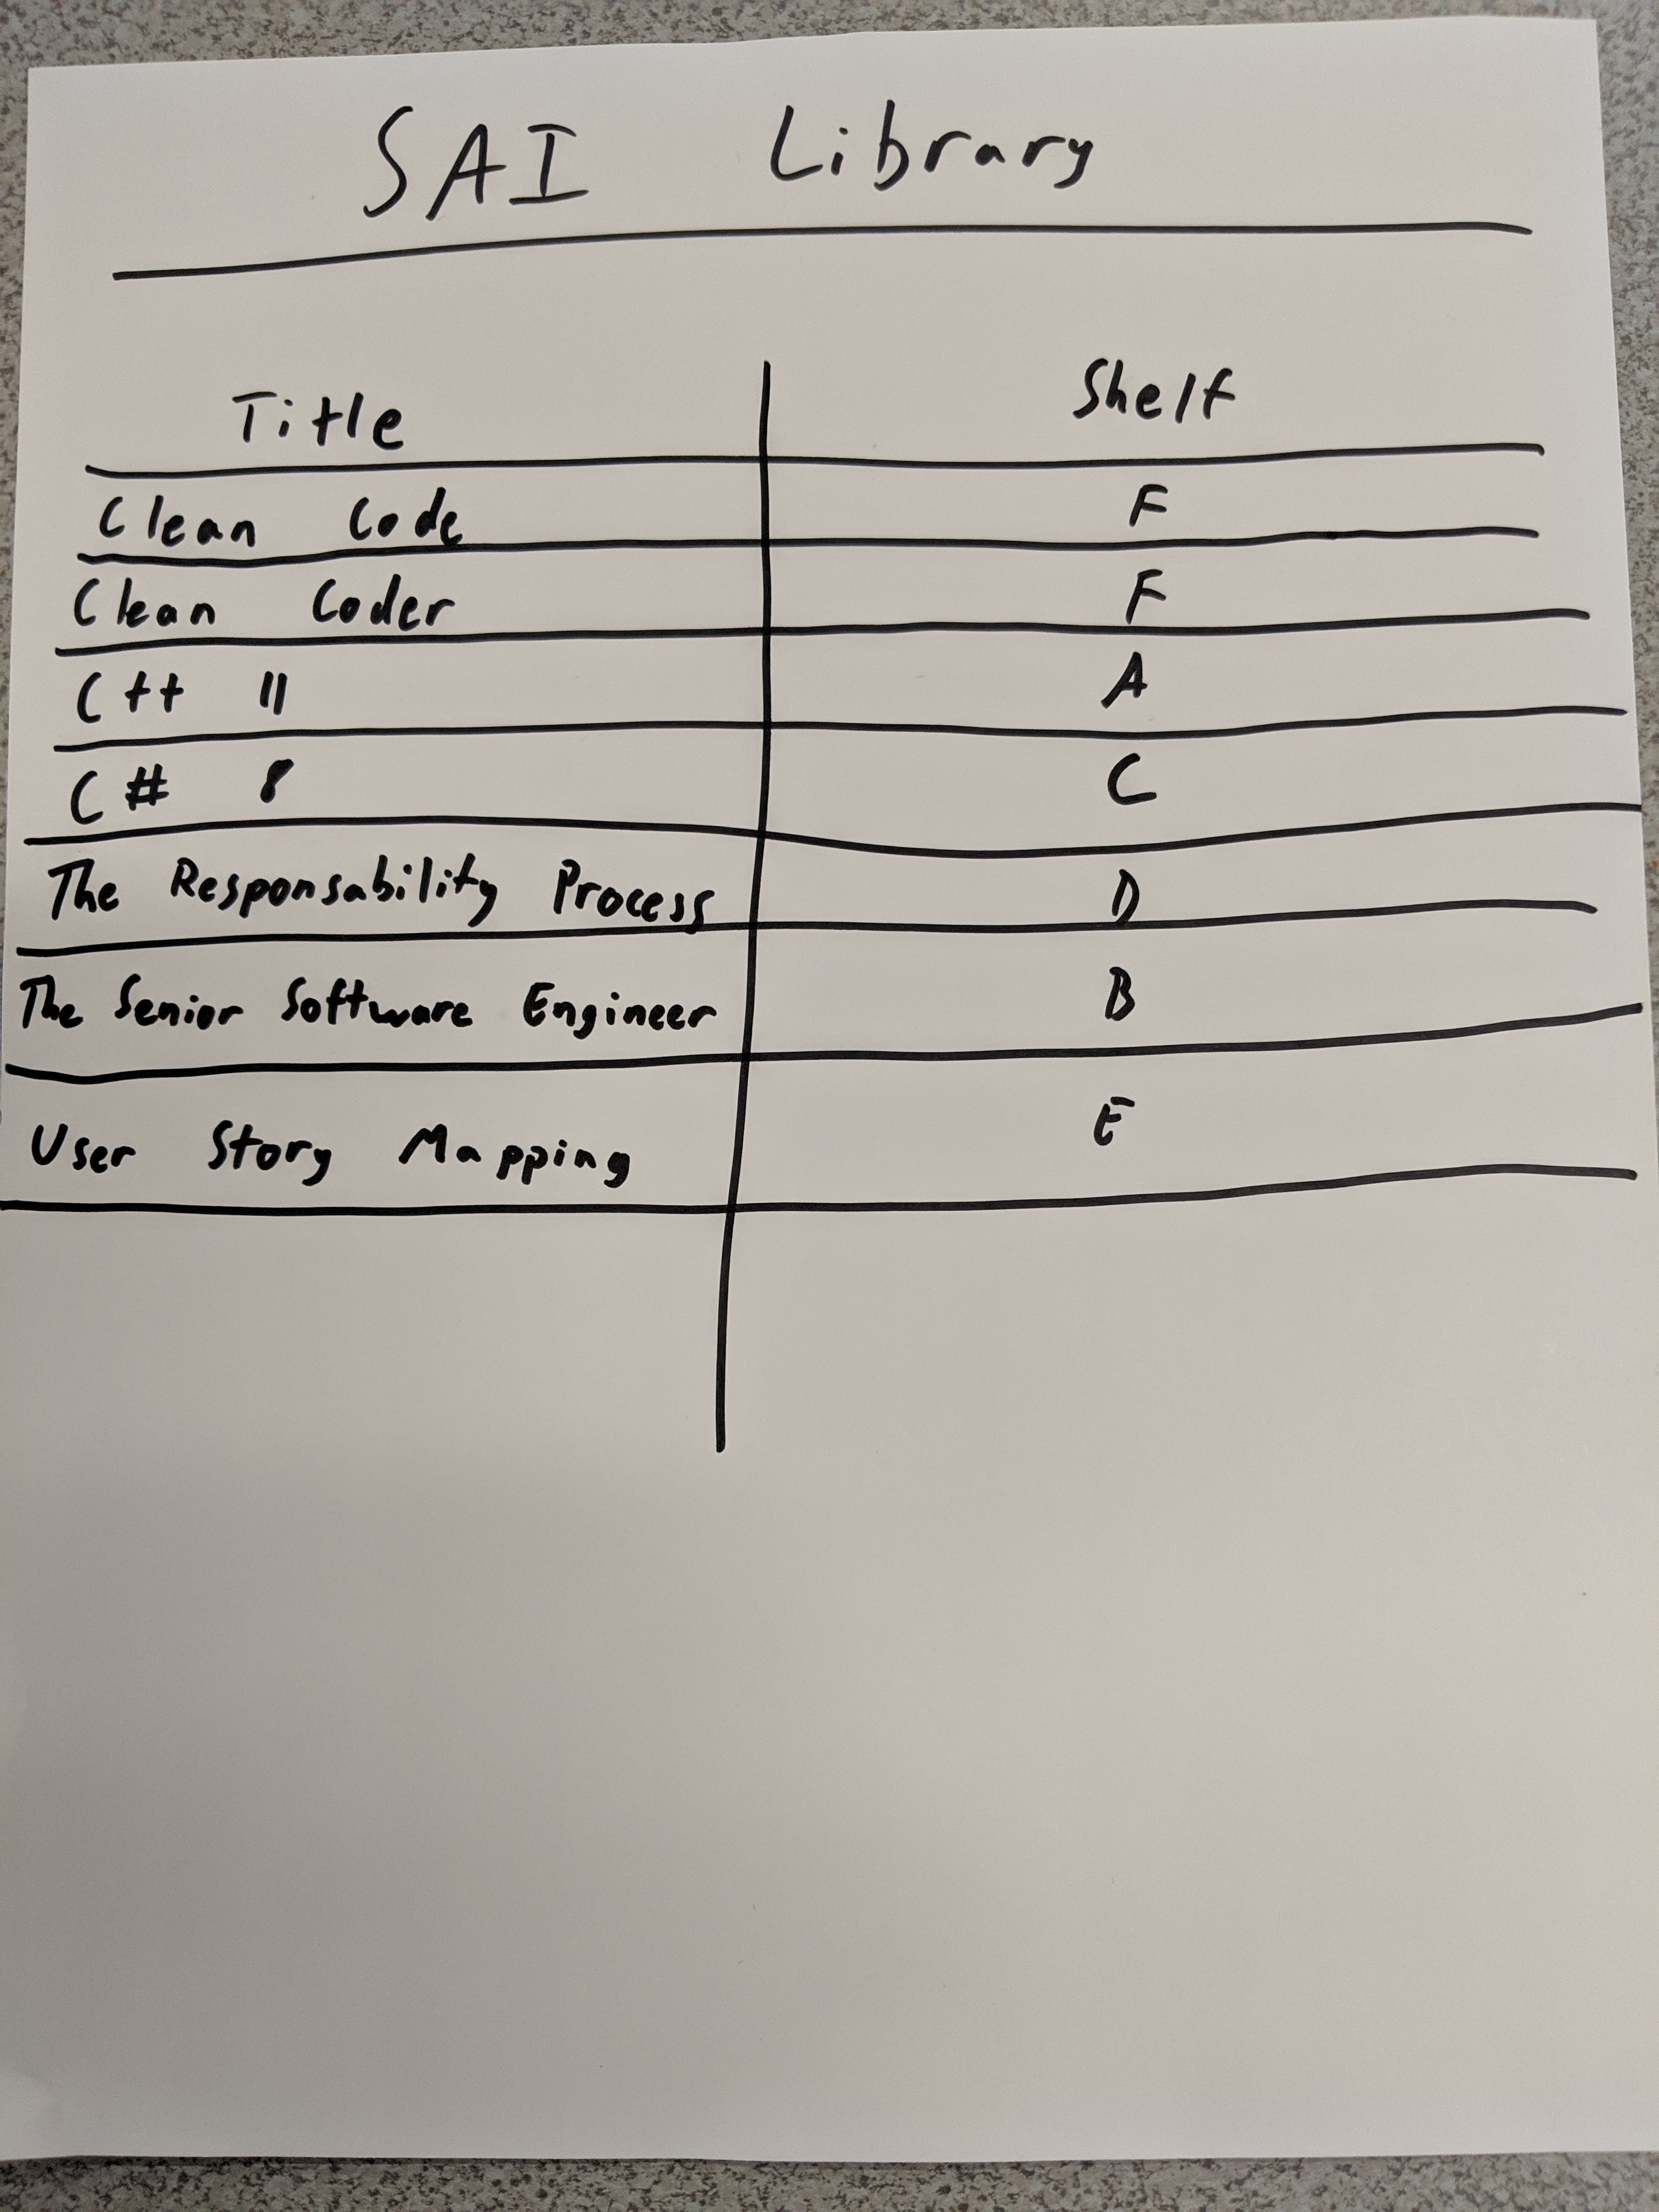 SAI Library
Title Shelf
Clean Code F
Clean Coder F
C++ 11 A
C# 8 C
The Responsability Process D
The Senior Software Engineer B
User Story Mapping E